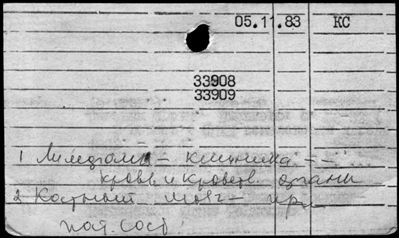 05.11.83 КС
33908
33909
1 Лимфомы – клиника --
кровь и кроветв. органы
2 Костный мозг – при
пат. сост.